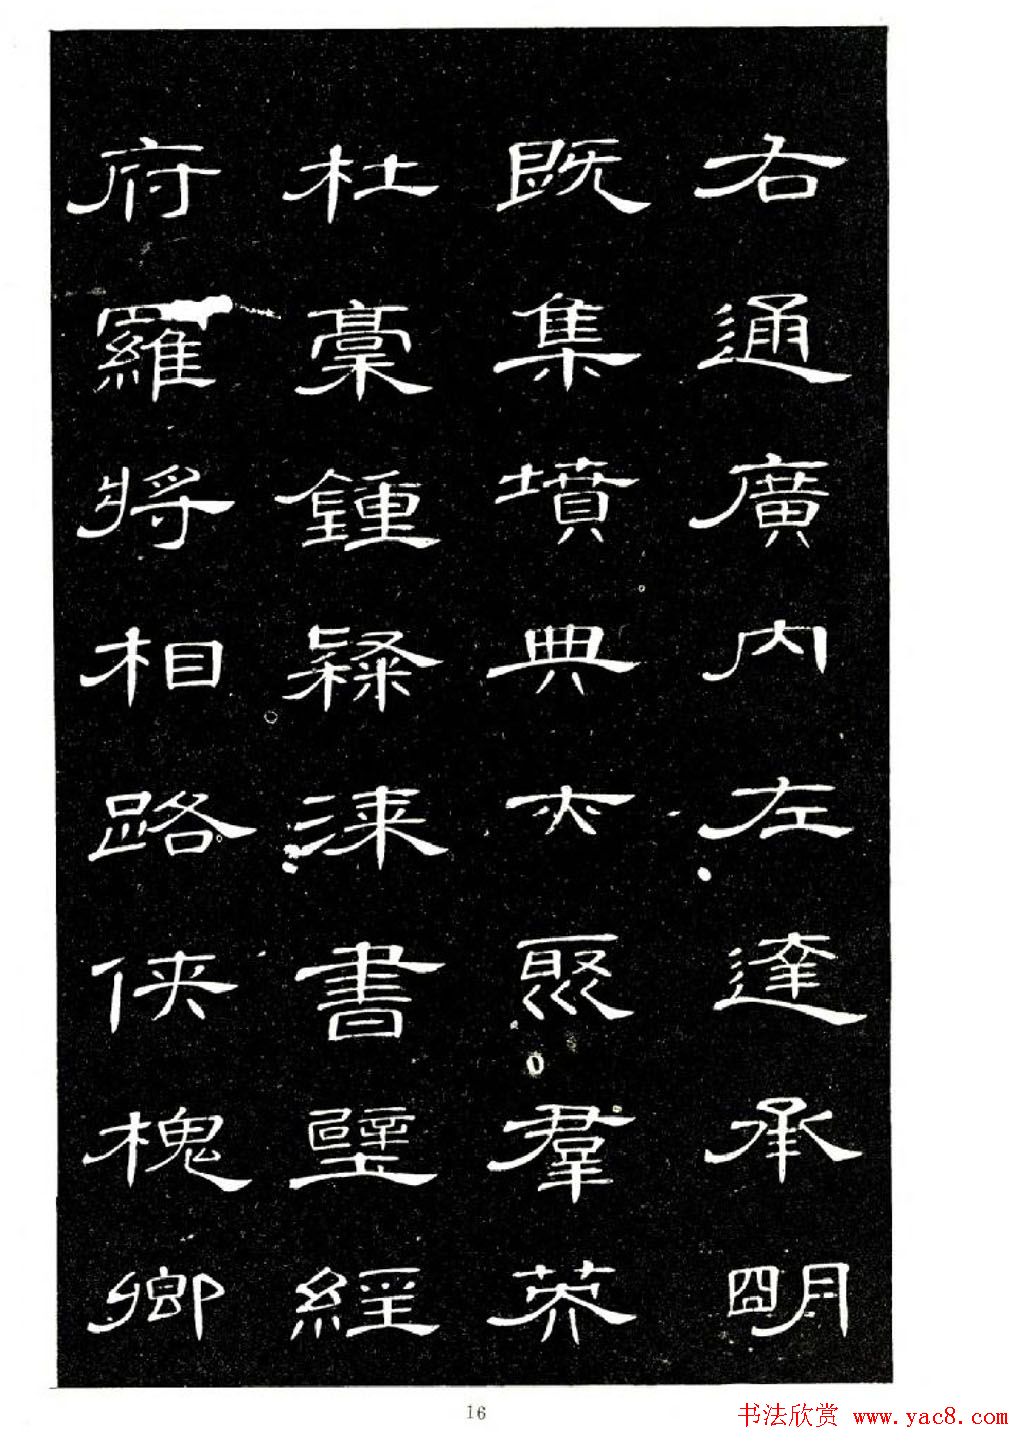 右通廣内左達承明
既集墳典亦聚羣英
杜稾鍾隸漆書壁經
府羅將相路俠槐卿
16
书法欣赏 www.yac8.com